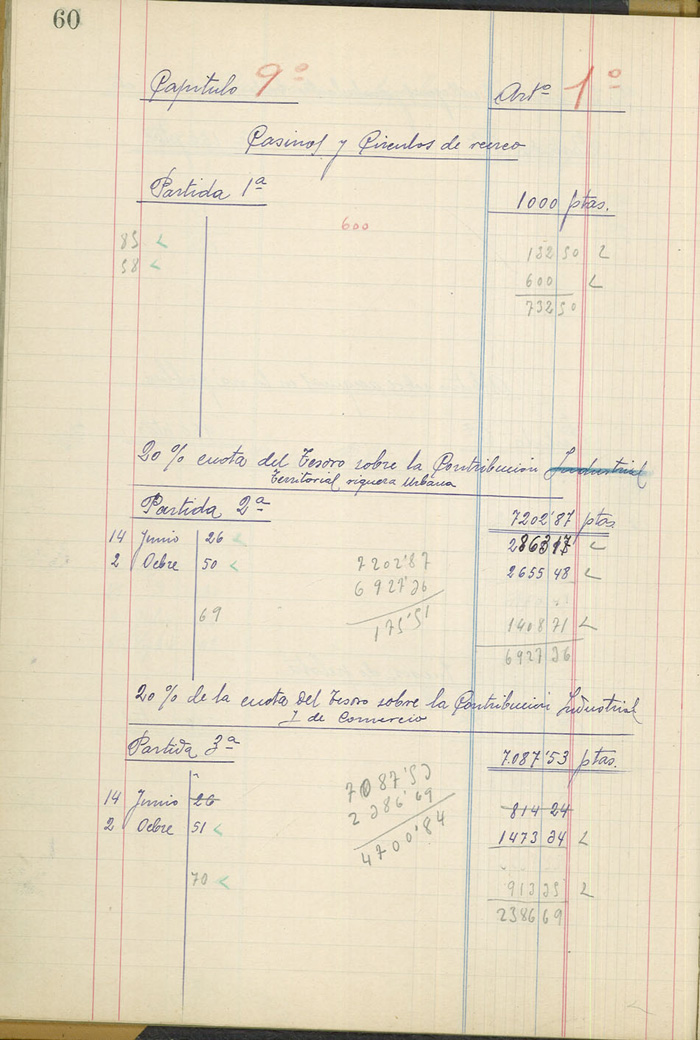 60
Capitulo 9º Artº 1º
Casinos y Circulos de recreo
Partida 1ª 1000 ptas.
600
85 132 50
58 600
732 50
20 % cuota del Tesoro sobre la Contribución Industrial
Territorial riquera Urbana
Partida 2ª 7202'87 ptas
14 Junio 26 2863 17
2 Ocbre 50 7202'87 2655 48
6927'36
69 175'51 1408 71
6927 36
20 % de la cuota del Tesoro sobre la Contribución Industrial
I de Comercio
Partida 3ª 7.087'53 ptas.
14 Junio 26 7087'53 814 24
2 Ocbre 51 2386'69 1473 34
4700'84
70 913 35
2386 69